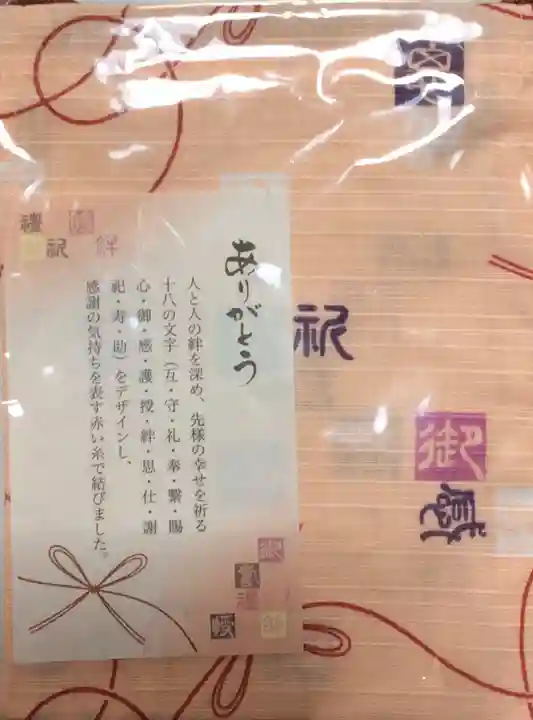 ありがとう
人と人の絆を深め、先様の幸せを祈る
十八の文字（互・守・礼・奉・繋・賜
心・御・感・護・授・絆・恩・仕・謝
祀・寿・助）をデザインし、
感謝の気持ちを表す赤い糸で結びました。
禮
祀
絆
祀
御
感
御
授